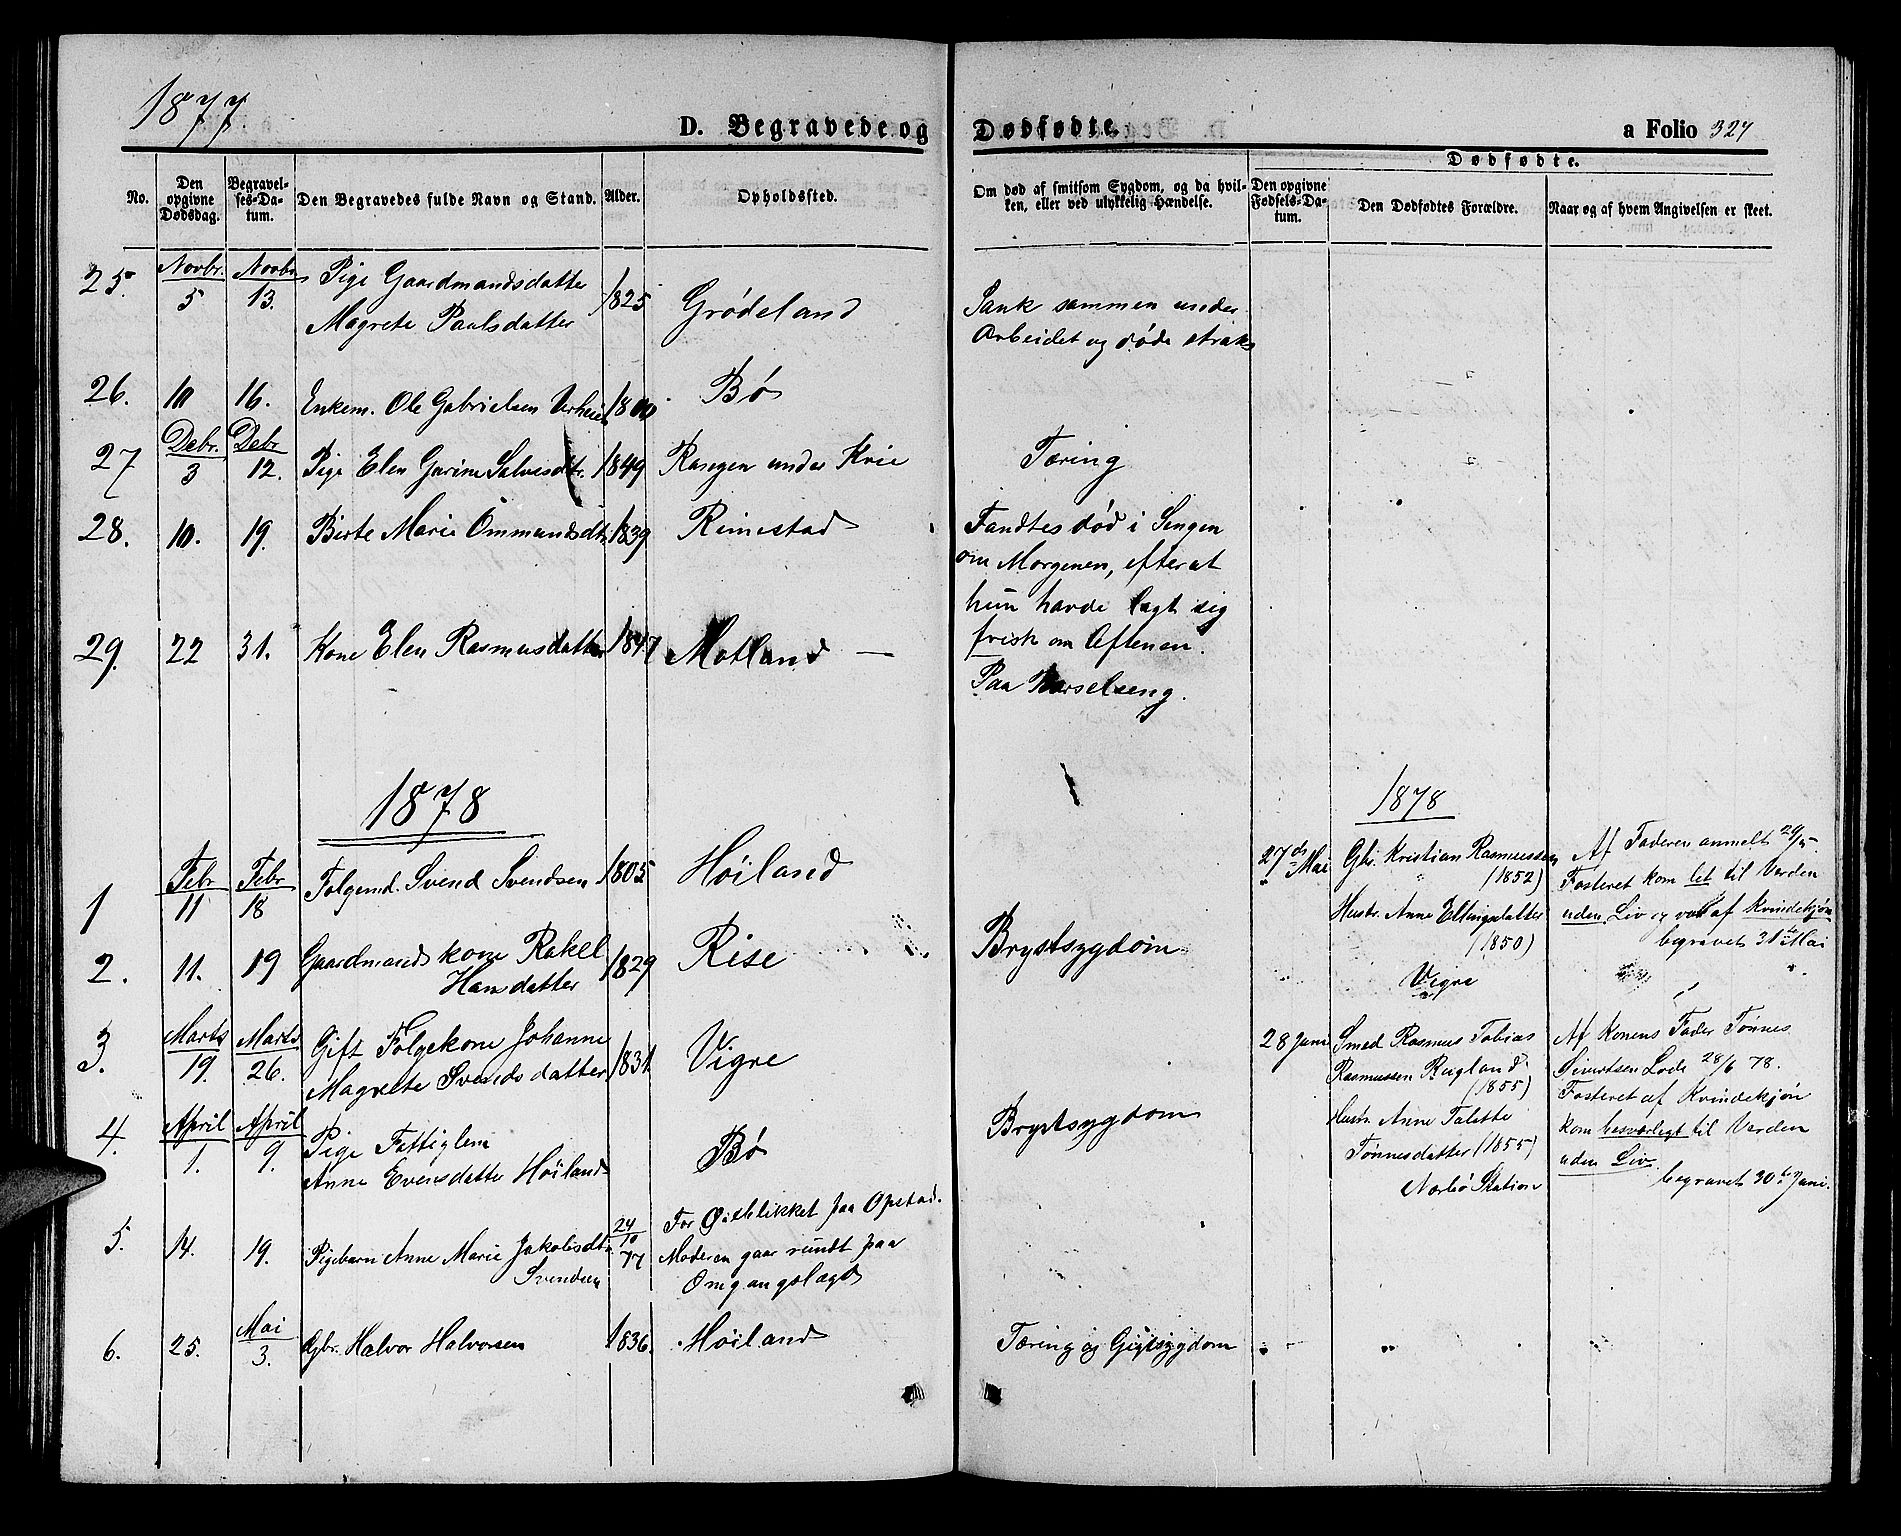 1877
D. Begravede og Dødfødte.
a Folio 327
No.
Den opgivne Dødsdag.
Begravelses-Datum.
Den Begravedes fulde Navn og Stand.
Alder.
Opholdssted.
Om død af smitsom Sygdom, og da hvilken, eller ved ulykkelig Hændelse.
Dødfødte.
Den opgivne Fødsels-Datum.
Den Dødfødtes Forældre.
Naar og af hvem Angivelsen er skeet.
25. Novbr. 5 Novbr 13. Pige Gaardmandsdatter 1825 Grødeland Sank sammen under
Magrete Paulsdatter Arbeidet og døde straks
26. 10 16. Enkem. Ole Gabrielsen 1800 Bø
27 Debr. 3 Debr 12. Pige Elen Gurine Salvesdtr. 1849 under Kvie Tæring
28. 10. 19. Birte Marie Ommundsdt. 1839 Reimestad Fandtes død i Sengen
om Morgenen, efter at
hun havde lagt sig
frisk om Aftenen.
29. 22 31. Kone Elen Rasmusdatter 1847 Motland — Paa Barselseng.
1878
1 Febr 11 Febr 18 Folgemd. Svend Svendsen 1805 Høiland
2. 11. 19 Gaardmands kone Rakel 1829 Rise Brystsygdom
Hansdatter
3. Marts 19. Marts 26. Gift Folgekone Johanne 1831 Vigre
Magrete Svendsdatter
4. April 1. April 9. Pige Fattiglem Bø Brystsygdom
Anne Evensdatter Høiland
5. 14. 19. Pigebarn Anne Marie Jakobsdt. 24/10 77 For Øieblikket paa Opstad.
Svendsen Moderen gaar rundt paa
Omgangslægd
6. 25. Mai 3. Gbr. Halvor Halvorsen 1836. Høiland Tæring og Gigtsygdom
1878
27de Mai Gbr. Kristian Rasmussen Af Faderen anmelt 29/5.
(1852) Fosteret kom let til Verden
Hustr. Anne Ellingsdatter uden Liv og var af Kvindekjøn
(1850) begravet 31te Mai
Vigre
28 Juni Smed Rasmus Tobias Af Konens Fader Tønnes
Rasmussen Rugland Sivertsen Lode 28/6 78.
(1855) Fosteret af Kvindekjøn
Hustr. Anne Talette kom besværligt til Verden
Tønnesdatter (1855) uden Liv.
Nærbø Station begravet 30te Juni.